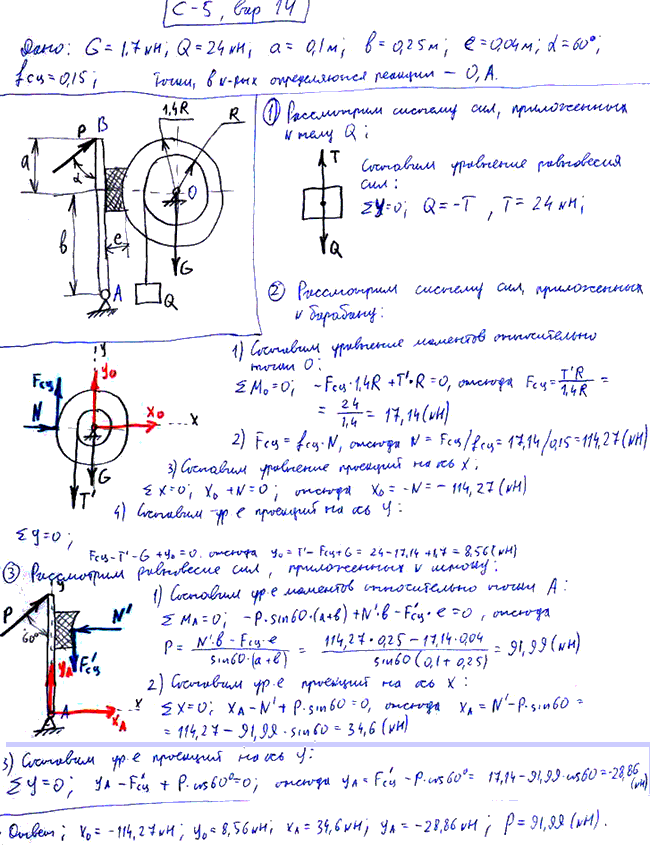 С-5, вар 14
Дано: G = 1,7 кН, Q = 24 кН, a = 0,1 м; b = 0,25 м, e = 0,04 м; α = 60°;
fсц = 0,15; Точки, в к-рых определяются реакции – O, A.
1,4R
R
P
B
a
α
O
b
e
G
A
Q
① Рассмотрим систему сил, приложенных
к телу Q;
T
Q
Составим уравнение равновесия
сил:
ΣY=0; Q = -T , T = 24 кН;
② Рассмотрим систему сил, приложенных
к барабану:
y
Fсц
y₀
N
x₀
x
G
T'
1) Составим уравнение моментов относительно
точки O:
ΣM₀=0; -Fсц·1,4R + T'·R = 0, откуда Fсц = T'R / 1,4R =
= 24 / 1,4 = 17,14 (кН)
2) Fсц = fсц·N, откуда N = Fсц/fсц = 17,14/0,15 = 114,27 (кН)
3) Составим уравнение проекций на ось X:
ΣX=0; X₀ + N = 0; откуда X₀ = -N = -114,27 (кН)
4) Составим ур-е проекций на ось Y:
ΣY=0;
Fсц - T' - G + y₀ = 0. откуда y₀ = T' - Fсц + G = 24 - 17,14 + 1,7 = 8,56 (кН)
③ Рассмотрим равновесие сил, приложенных к шкиву:
y
P
60°
N'
F'сц
yA
A
xA
x
1) Составим ур-е моментов относительно точки A:
ΣMA=0; -P·sin60·(a+b) + N'·b - F'сц·e = 0, откуда
P = N'·b - Fсц·e / sin60·(a+b) = 114,27·0,25 - 17,14·0,04 / sin60(0,1+0,25) = 91,99 (кН)
2) Составим ур-е проекций на ось X:
ΣX=0; XA - N' + P·sin60 = 0, откуда XA = N' - P·sin60 =
= 114,27 - 91,99·sin60 = 34,6 (кН)
3) Составим ур-е проекций на ось Y:
ΣY=0; yA - F'сц + P·cos60° = 0; откуда yA = F'сц - P·cos60° = 17,14 - 91,99·cos60 = -28,86 (кН)
Ответ; X₀ = -114,27 кН; y₀ = 8,56 кН; XA = 34,6 кН; yA = -28,86 кН; P = 91,99 (кН).